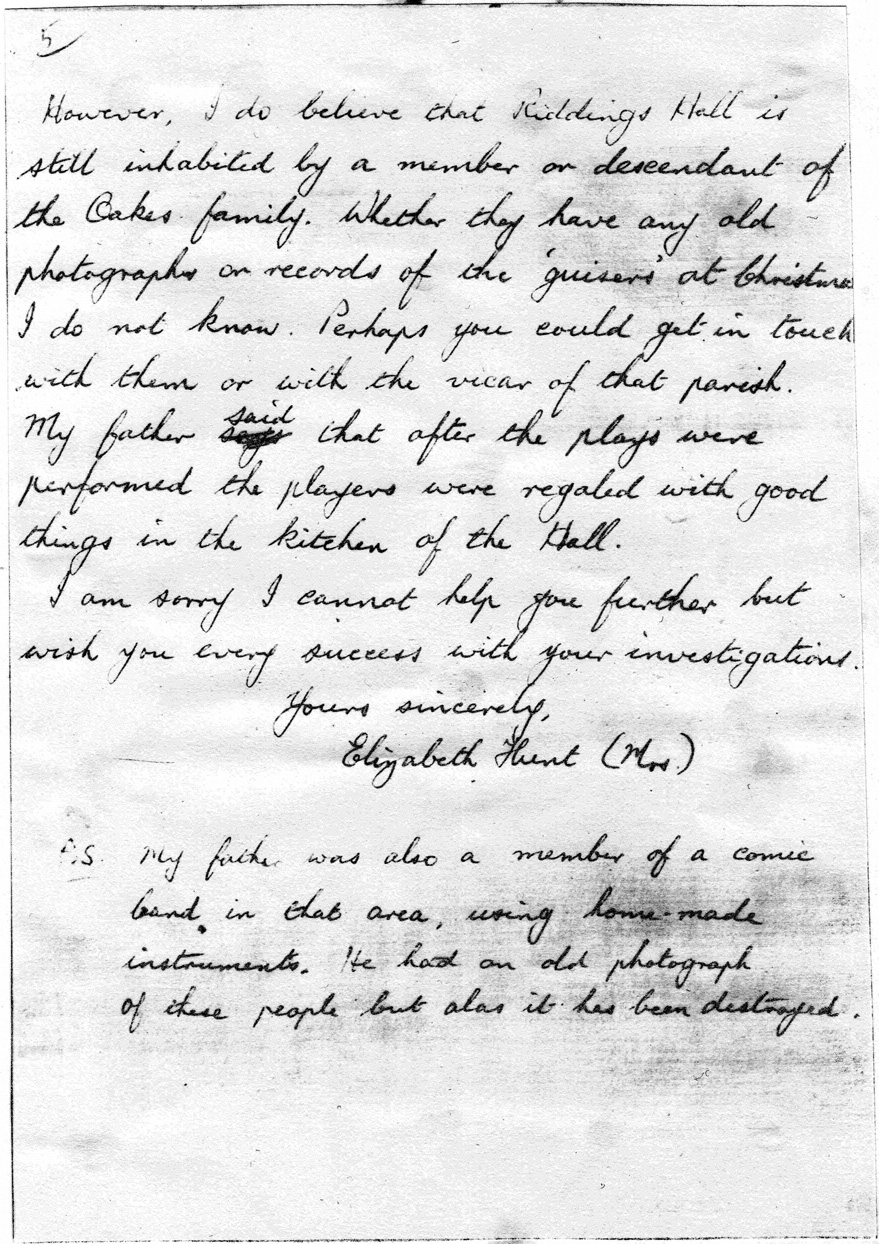 5
However, I do believe that Riddings Hall is
still inhabited by a member or descendant of
the Oakes family. Whether they have any old
photographs or records of the 'guisers' at Christmas
I do not know. Perhaps you could get in touch
with them or with the vicar of that parish.
My father said that after the plays were
performed the players were regaled with good
things in the kitchen of the Hall.
I am sorry I cannot help you further but
wish you every success with your investigations.
Yours sincerely,
Elizabeth Hunt (Mrs.)
P.S. My father was also a member of a comic
band, in that area, using home-made
instruments. He had an old photograph
of these people but alas it has been destroyed.